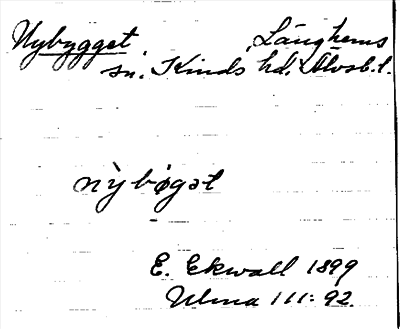 Nybygget, Långhems
sn. Kinds hd. Älvsb. l.
nỳbøgət
E. Ekwall 1899
Ulma 111:92.